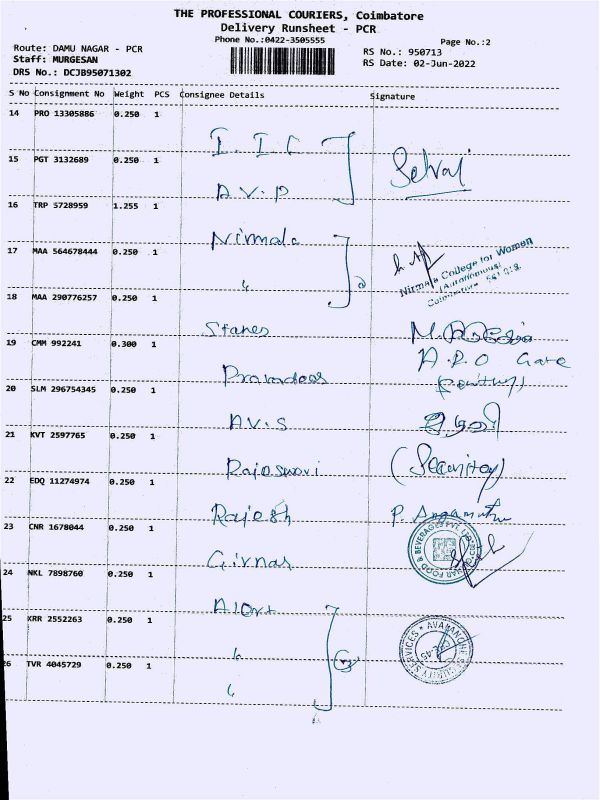 THE PROFESSIONAL COURIERS, Coimbatore
Delivery Runsheet - PCR
Phone No.:0422-3505555
Page No.:2
Route: DAMU NAGAR - PCR
RS No.: 950713
Staff: MURGESAN
RS Date: 02-Jun-2022
DRS No.: DCJB95071302
S No Consignment No Weight PCS Consignee Details Signature
14 PRO 13305886 0.250 1
I. I C
15 PGT 3132689 0.250 1
Selvaj
A.V.P
16 TRP 5728959 1.255 1
Nirmala
17 MAA 564678444 0.250 1
Nirmala College for Women
(Autonomous)
Coimbatore - 641 018
18 MAA 290776257 0.250 1
Stanes
19 CMM 992241 0.300 1
A.P.O Gate
20 SLM 296754345 0.250 1
AV.S
21 KVT 2597765 0.250 1
(Security)
22 EDQ 11274974 0.250 1
Rajesh
23 CNR 1678044 0.250 1
FOOD & BEVERAGES PVT. LTD
Girnar
24 NKL 7898760 0.250 1
Alert
25 KRR 2552263 0.250 1
AVALANCHE SECURITY SERVICES
26 TVR 4045729 0.250 1